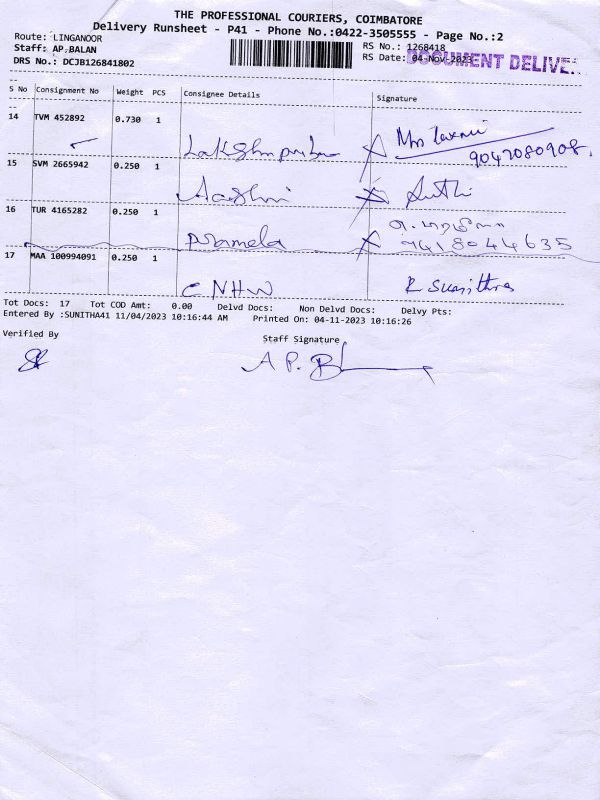 THE PROFESSIONAL COURIERS, COIMBATORE
Delivery Runsheet - P41 - Phone No.:0422-3505555 - Page No.:2
Route: LINGANOOR
RS No.: 1268418
Staff: AP.BALAN
RS Date: 04-Nov-2023
DOCUMENT DELIVE
DRS No.: DCJB126841802
S No Consignment No Weight PCS Consignee Details Signature
14 TVM 452892 0.730 1
Mrs Laxmi
9047080908
15 SVM 2665942 0.250 1
16 TUR 4165282 0.250 1
Pramela 9418044635
17 MAA 100994091 0.250 1
CNHW R Sunithra
Tot Docs: 17 Tot COD Amt: 0.00 Delvd Docs: Non Delvd Docs: Delvy Pts:
Entered By :SUNITHA41 11/04/2023 10:16:44 AM Printed On: 04-11-2023 10:16:26
Verified By
Staff Signature
A P. B